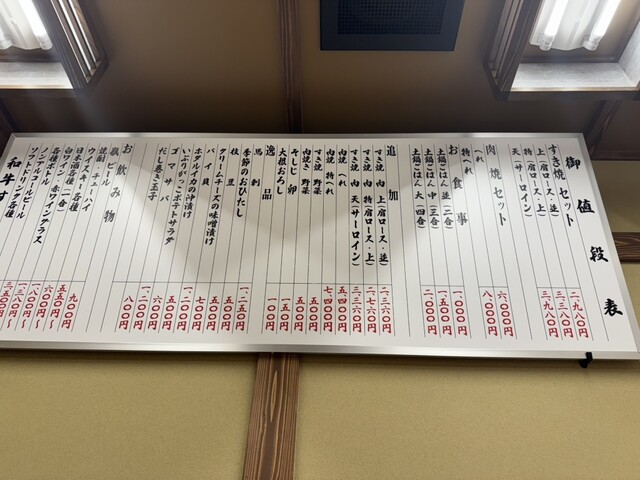 御値段表
すき焼セット
上（肩ロース・並） 二、九八〇円
特（肩ロース・上） 三、三八〇円
天（サーロイン） 三、九八〇円
肉焼セット
へれ 六、〇〇〇円
特へれ 八、〇〇〇円
お食事
土鍋ごはん 並（二合） 一、〇〇〇円
土鍋ごはん 中（三合） 一、五〇〇円
土鍋ごはん 大（四合） 二、〇〇〇円
追加
すき焼 肉 上（肩ロース・並） 二、三六〇円
すき焼 肉 特（肩ロース・上） 二、七六〇円
すき焼 肉 天（サーロイン） 三、三六〇円
肉焼 へれ 五、四〇〇円
肉焼 特へれ 七、四〇〇円
すき焼 野菜
肉焼 野菜
そじ 卵 一〇〇円
大根おろし 一五〇円
逸品
馬刺 一、二五〇円
季節のおひたし 五〇〇円
枝豆 五〇〇円
クリームチーズの味噌漬け
バイ貝 七〇〇円
ホタルイカの沖漬け
いぶりがっこポテトサラダ
ゴマサバ
だし巻き玉子
お飲み物
瓶ビール
焼酎
チューハイ
ウイスキー各種
日本酒各種（一合） 九〇〇円
白ワイン・赤ワイングラス
各種ボトル
ノンアルコールビール
ソフトドリンク各種
和牛す